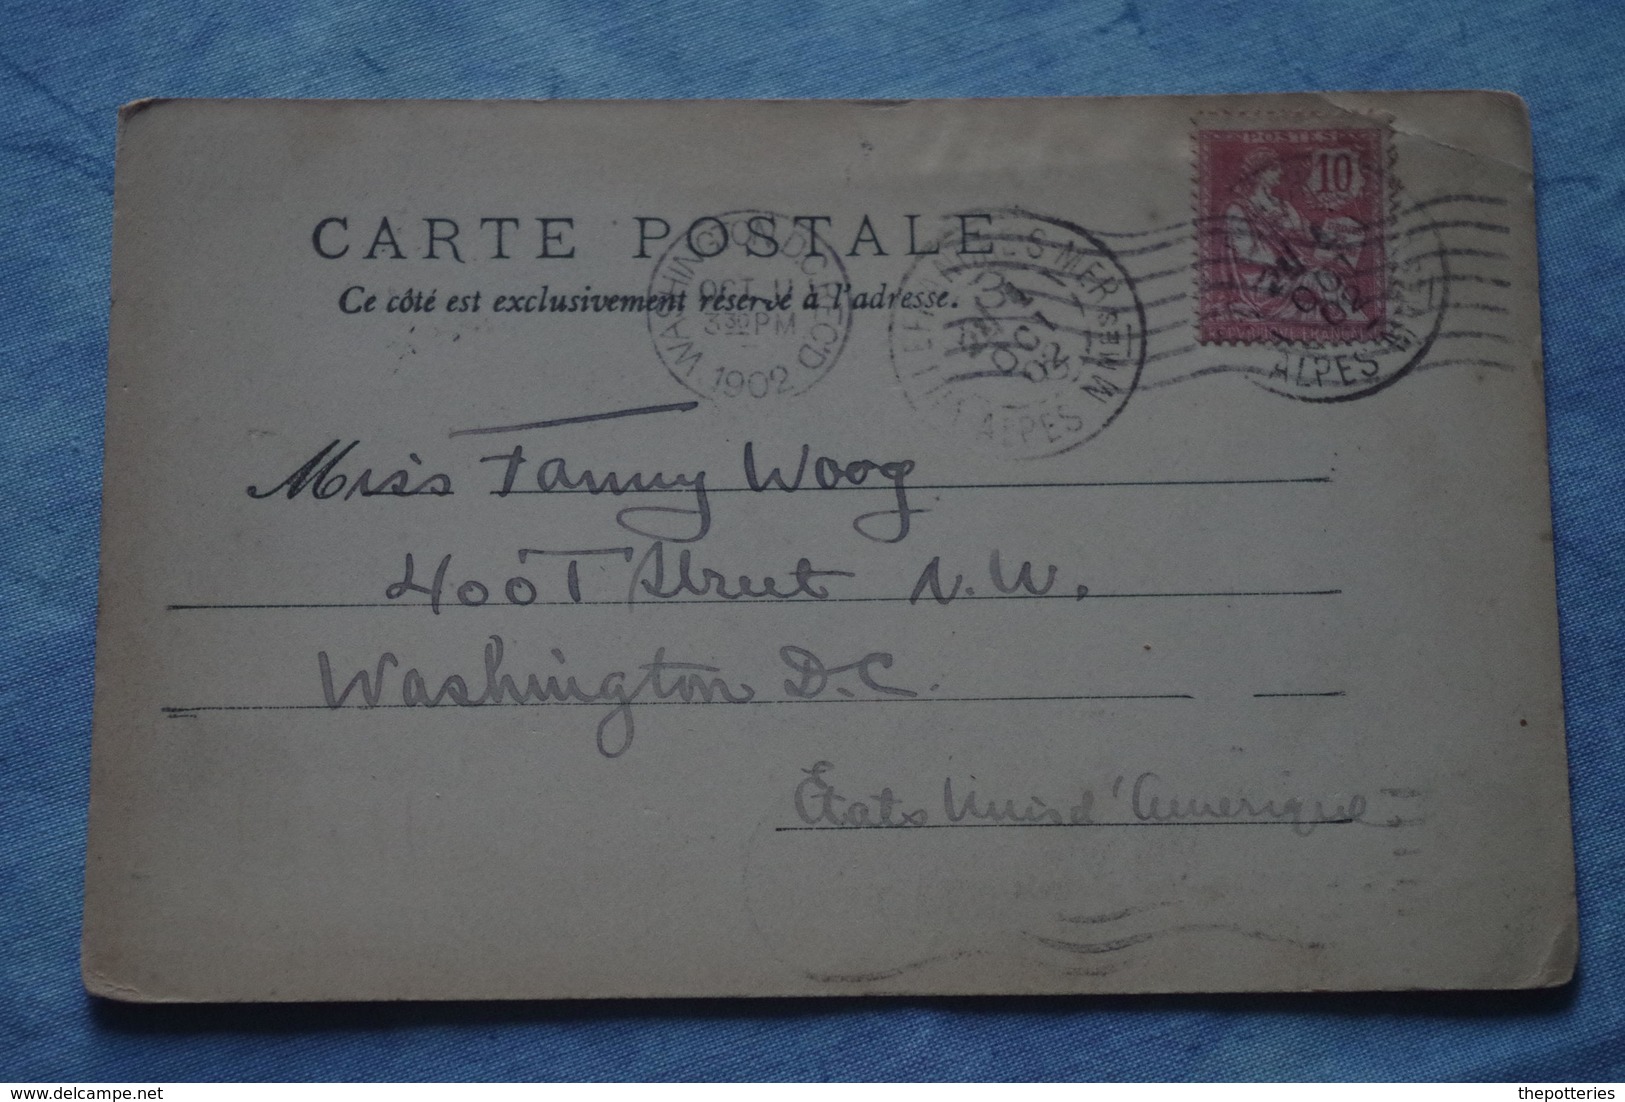 POSTES
10
CARTE POSTALE
Ce côté est exclusivement réservé à l'adresse.
WASHINGTON, D.C. REC'D
OCT 11
3 30 PM
1902
OCT
02
ALPES MARIT
ALPES
Miss Fanny Woog
400 T Street N.W.
Washington D.C.
États Unis d'Amerique
delcampe.net
thepotteries